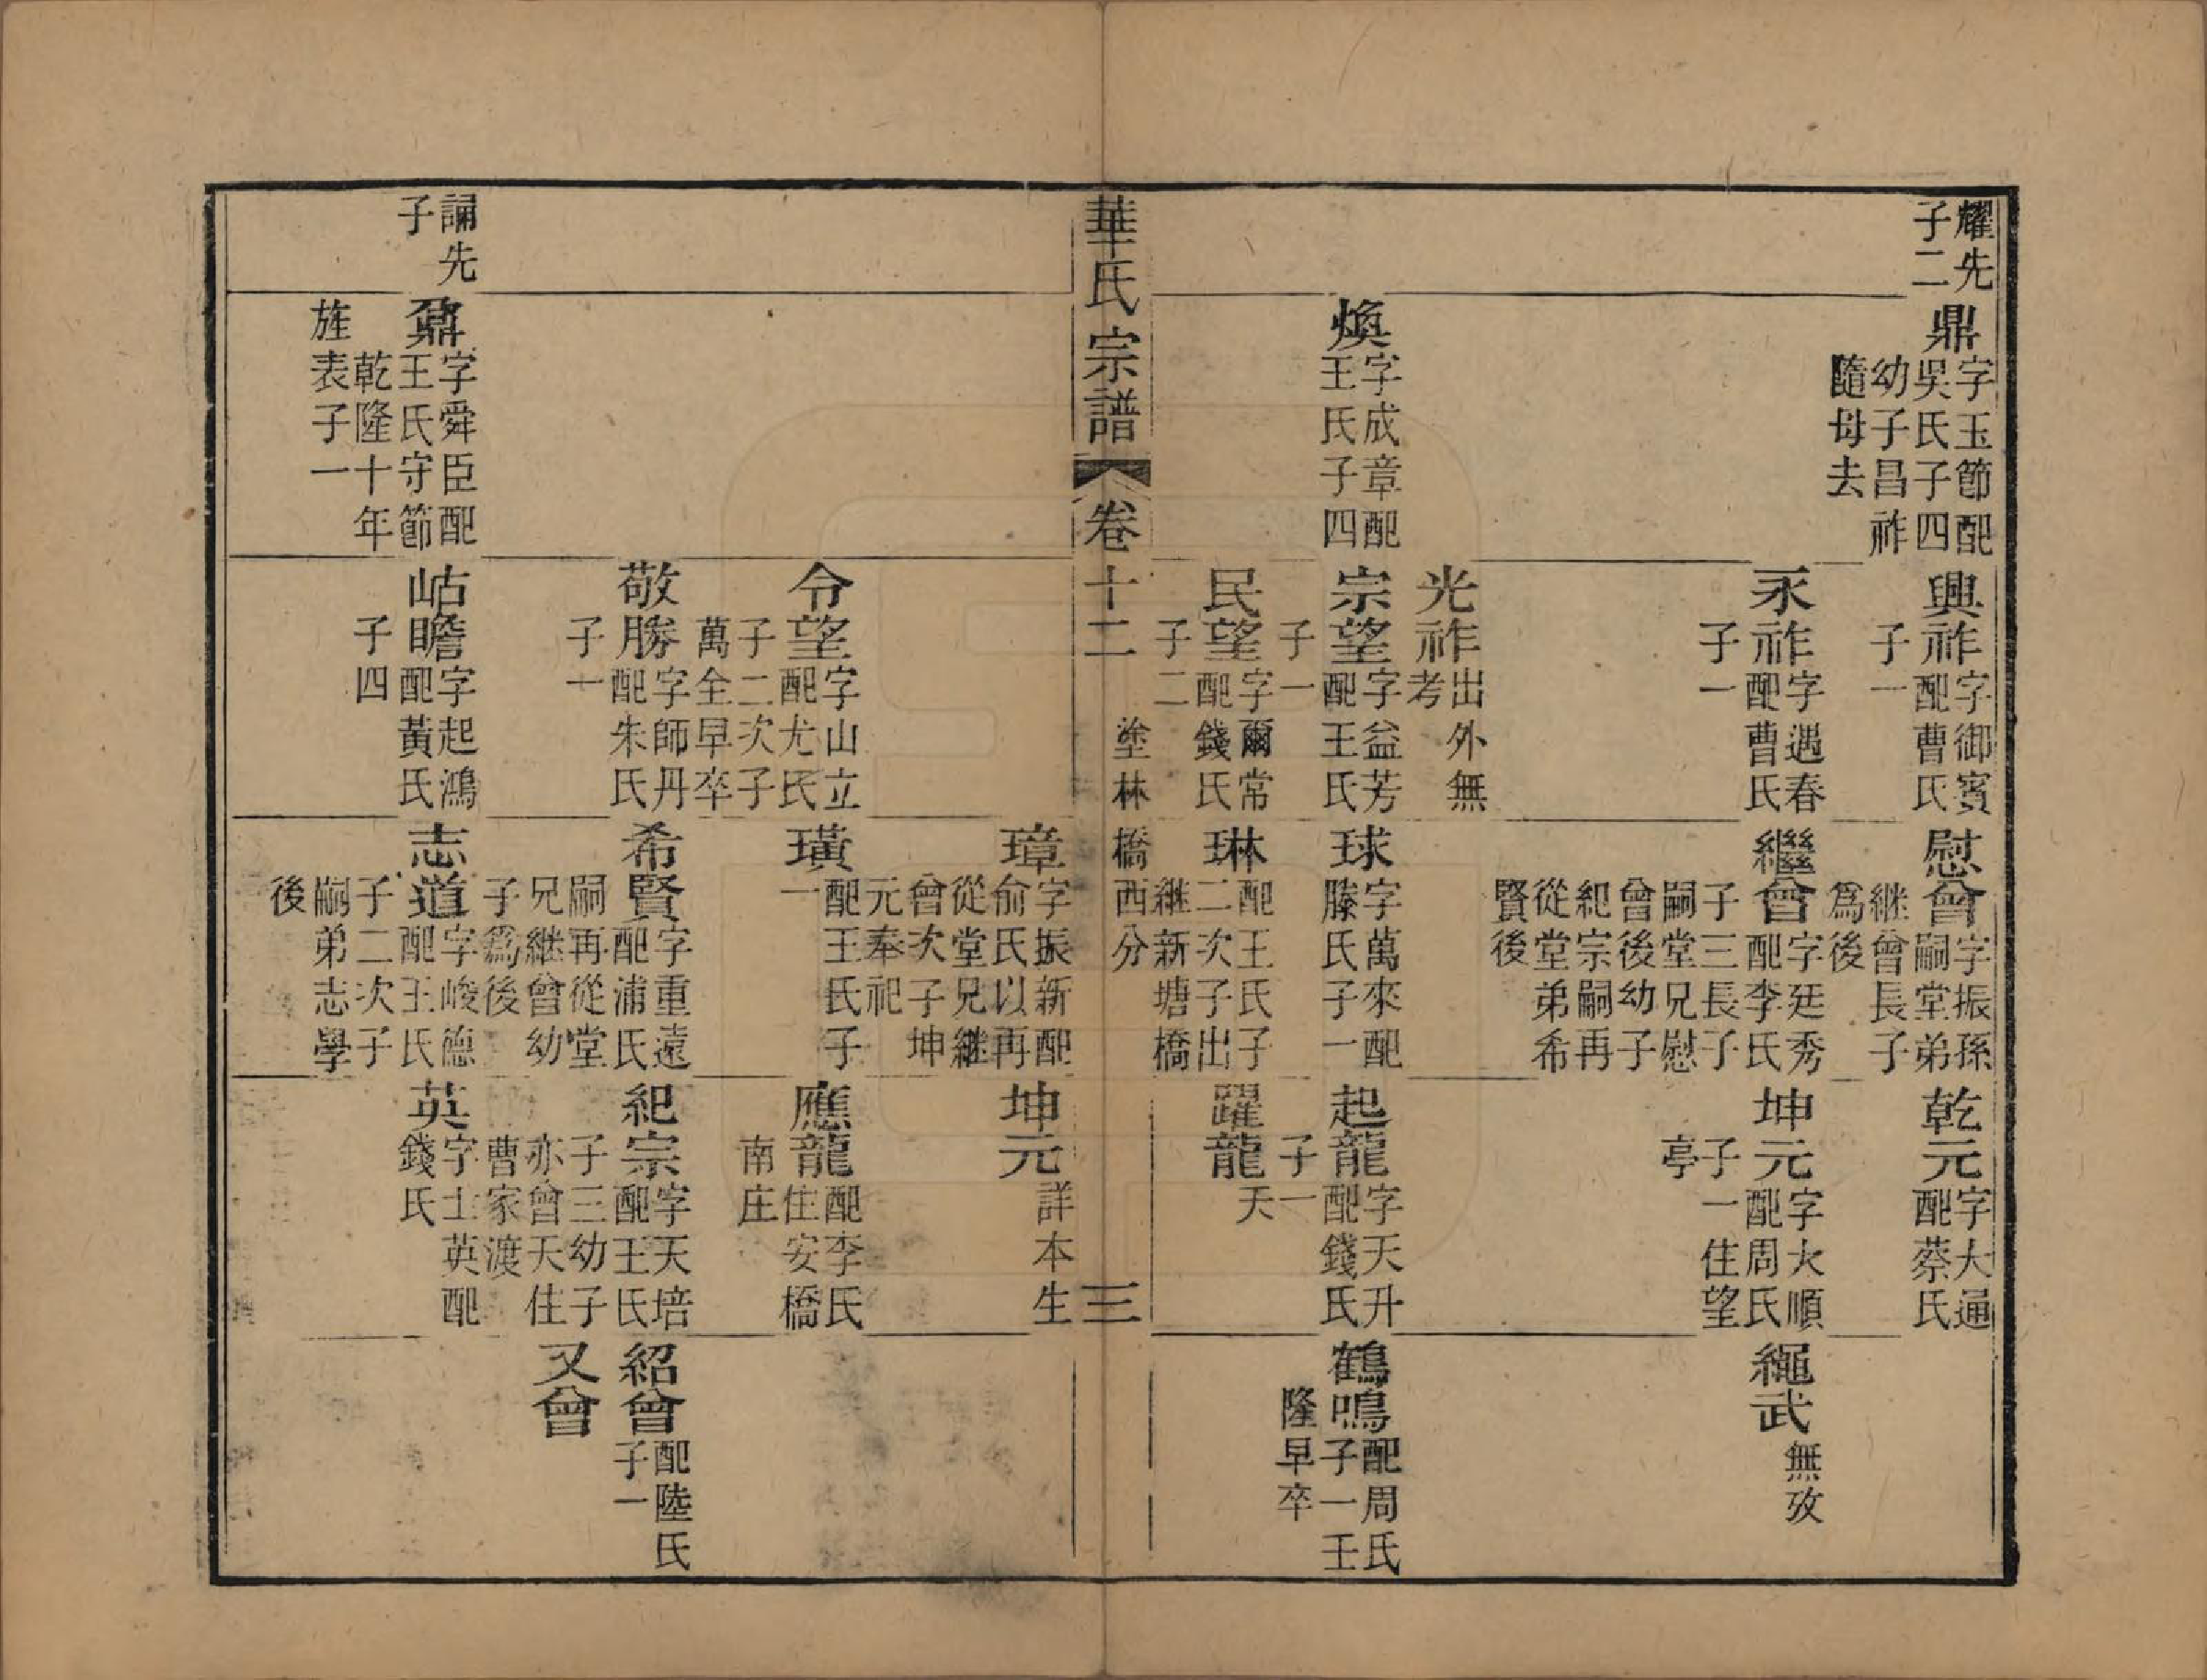 耀先
子二
鼎
字玉節配
吳氏子四
幼子昌祚
隨母去
興祚
字御賓
配曹氏
子一
慰曾
字振孫
嗣堂弟
継曾長子
爲後
乾元
字大通
配蔡氏
永祚
字遇春
配曹氏
子一
繼曾
字廷秀
配李氏
子三長子
嗣堂兄慰
曾後幼子
紀宗嗣再
從堂弟希
賢後
坤元
字大順
配周氏
子一住望
亭
繩武
無攷
光祚
出外無
考
煥
字成章配
王氏子四
宗望
字益芳
配王氏
子一
球
字萬來配
滕氏子一
起龍
字天升
配錢氏
子一
鶴鳴
配周氏
子一壬
隆早卒
民望
字爾常
配錢氏
子二
琳
配王氏子
二次子出
継新塘橋
躍龍
天
華氏宗譜
卷十二
塗林橋西分
三
璋
字振新配
俞氏以再
從堂兄継
曾次子坤
元奉祀
坤元
詳本生
令望
字山立
配尤氏
子二次子
萬全早卒
璜
配王氏子
一
應龍
配李氏
住安橋
南庄
敬勝
字師丹
配朱氏
子一
希賢
字重遠
配浦氏
嗣再從堂
兄継曾幼
子爲後
紀宗
字天培
配王氏
子三幼子
亦曾天住
曹家渡
紹曾
配陸氏
子一
又曾
誦先
子
鼐
字舜臣配
王氏守節
乾隆十年
旌表子一
岵瞻
字起鴻
配黃氏
子四
志道
字峻德
配王氏
子二次子
嗣弟志學
後
英
字士英配
錢氏